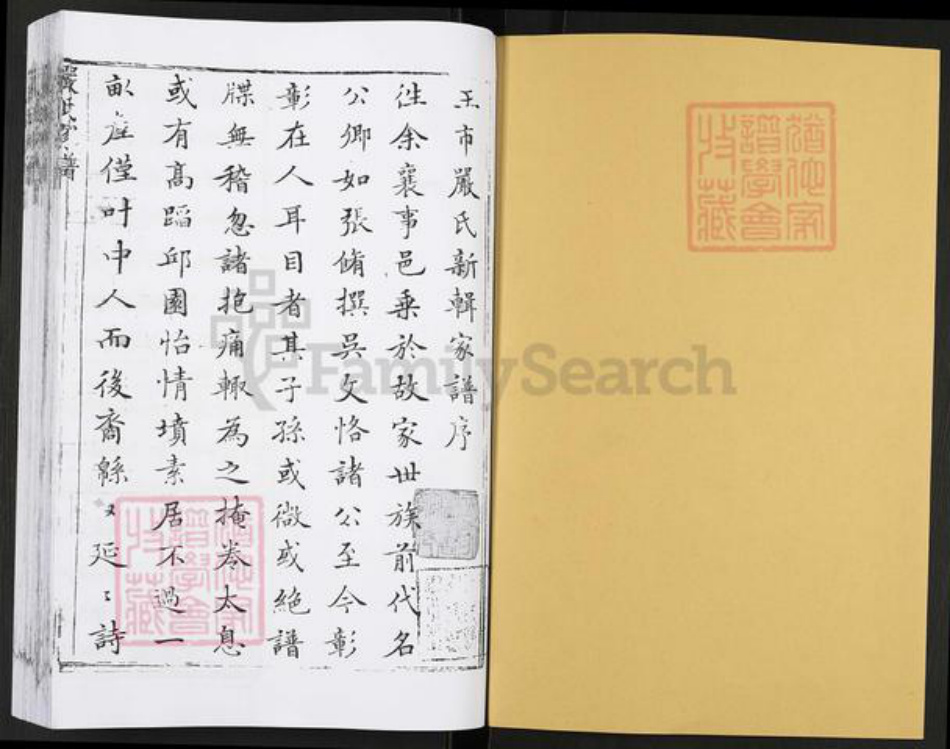 王市嚴氏新輯家譜序
徃余襄事邑乗於故家世族前代名
公卿如張脩撰吳文恪諸公至今彰
彰在人耳目者其子孫或微或絶譜
牒無稽忽諸抱痛輙為之掩卷太息
或有高蹈邱園怡情墳素居不過一
畝產僅叶中人而後裔緜〻延〻詩
嚴氏家譜
猶他家
譜學會
收藏
猶他家
譜學會
收藏
FamilySearch